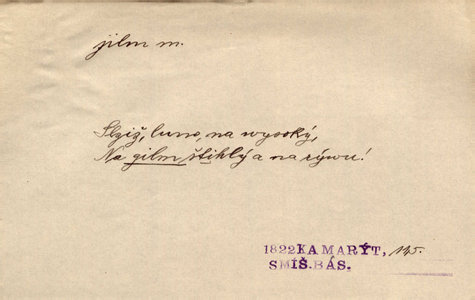 jilm m.
Slziž, luno, na wysoký,
Na gilm štihlý a na rýwu!
1822 KAMARÝT, 145.
SMÍŠ. BÁS.